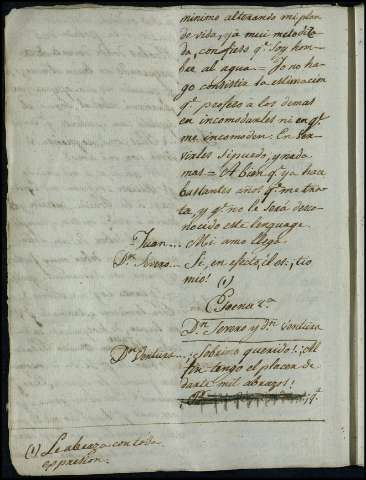 minimo alterando mi plan
de vida, ya mui metodiza
da, confieso q.e soy hom-
bre al agua = Yo no ha-
go consistir la estimacion
q.e profeso a los demas
en incomodarles ni en q.e
me incomoden. En ser-
virles si puedo, y nada
mas = A bien q.e ya hace
bastantes años q.e me tra-
ta, y q.e no le será desco-
nocido este lenguage.
Juan... Mi amo llega.
D.n Severo... Si, en efecto, el es; ¡tio
mio! (1)
Scena 2.a
D.n Severo y D.n Ventura
D.n Ventura... ¡Sobrino querido! ¡Al
fin tengo el placer de
darte mil abrazos!
(1) Le abraza con toda
espresion.